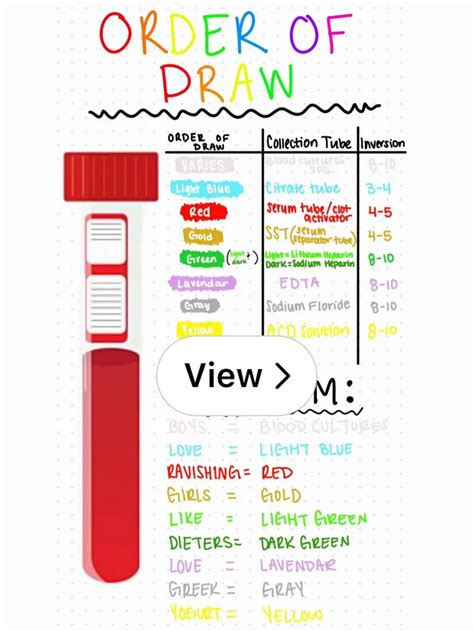 ORDER OF
DRAW
ORDER OF DRAW Collection Tube Inversion
VARIES Blood cultures- SPS 8-10
Light Blue Citrate tube 3-4
Red Serum tube/clot activator 4-5
Gold SST (serum separator tube) 4-5
Green (light + dark) Light = Lithium Heparin Dark = Sodium Heparin 8-10
Lavendar EDTA 8-10
Gray Sodium Floride 8-10
Yellow ACD Solution 8-10
View >
M:
BOYS = BLOOD CULTURES
LOVE = LIGHT BLUE
RAVISHING = RED
GIRLS = GOLD
LIKE = LIGHT GREEN
DIETERS = DARK GREEN
LOVE = LAVENDAR
GREEK = GRAY
YOGURT = YELLOW